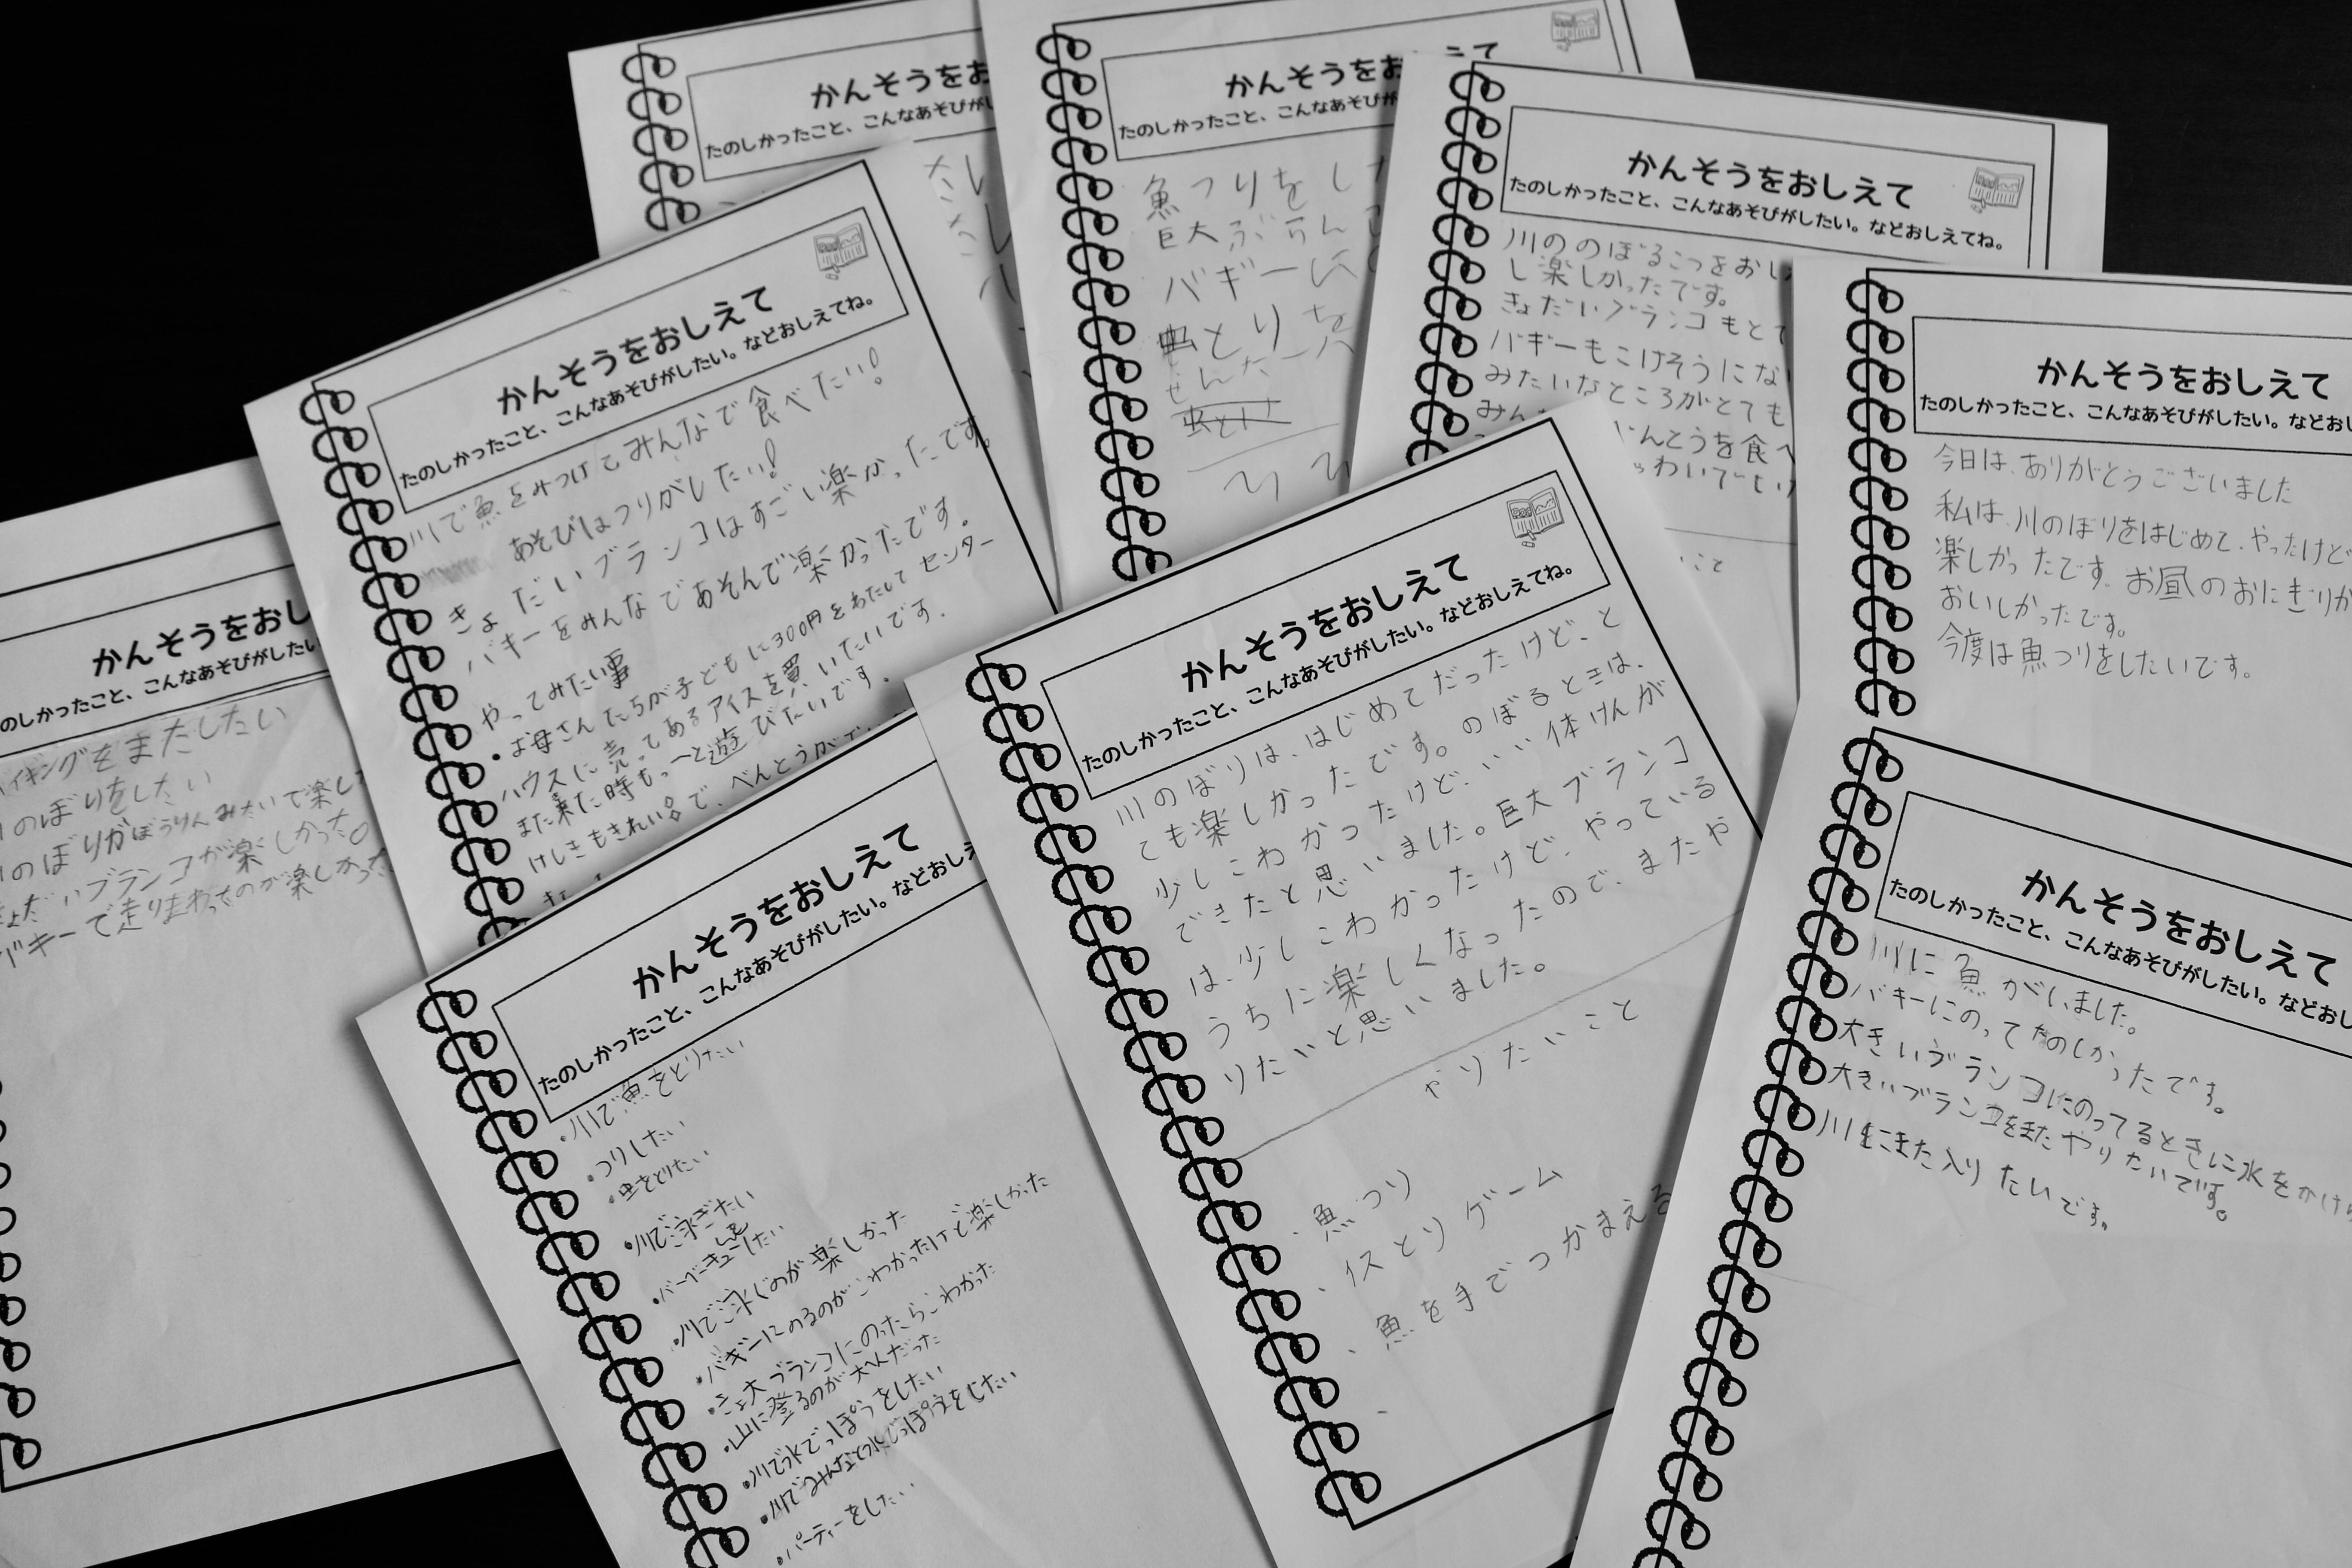 かんそうをお
たのしかったこと、こんなあそびがし
かんそうをお
たのしかったこと、こんなあそびが
魚つりをした
巨大ぶらんこ
バギー
虫とりを
かんそうをおしえて
たのしかったこと、こんなあそびがしたい。などおしえてね。
川ののぼるこつをおし
し楽しかったです。
きょだいブランコもとて
バギーもこけそうにな
みたいなところがとても
みん
んとうを食べ
こと
かんそうをおしえて
たのしかったこと、こんなあそびがしたい。などおし
今日は、ありがとうございました
私は、川のぼりをはじめて、やったけど
楽しかったです。お昼のおにぎりが
おいしかったです。
今度は魚つりをしたいです。
かんそうをおしえて
たのしかったこと、こんなあそびがしたい。などおしえてね。
川で魚をみつけてみんなで食べたい!
あそびはつりがしたい!
きょだいブランコはすごい楽かったです。
バキーをみんなであそんで楽かったです。
やってみたい事
・お母さんたちが子どもに300円をわたしてセンター
ハウスに売ってあるアイスを買いたいです。
また来た時もっーと遊びたいです。
けしきもきれいで、べんとうが
かんそうをおし
のしかったこと、こんなあそびがしたい
イキングをまたしたい
のぼりをしたい
のぼりがぼうけんみたいで楽し
ょだいブランコが楽しかった。
バキーで走りまわったのが楽しかった
かんそうをおしえて
たのしかったこと、こんなあそびがしたい。などおしえ
・川で魚をとりたい
・つりしたい
・虫をとりたい
・川で泳ぎたい
・バーベーキューしたい
・川で泳じのが楽しかった
・バギーにのるのがこわかったけど楽しかった
・きょ大ブランコにのたらこわかった
・山に登るのが大へんだった
・川で水でっぽうをしたい
・川でみんなと水でっぽうをしたい
・パーティーをしたい
かんそうをおしえて
たのしかったこと、こんなあそびがしたい。などおしえてね。
川のぼりは、はじめてだったけど、と
ても楽しかったです。のぼるときは、
少しこわかったけど、いい体けんが
できたと思いました。巨大ブランコ
は、少しこわかったけど、やっている
うちに楽しくなったので、またや
りたいと思いました。
やりたいこと
・魚つり
・イスとりゲーム
・魚を手でつかまえる
かんそうをおしえて
たのしかったこと、こんなあそびがしたい。などおし
川に魚がいました。
バキーにのってたのしかったです。
大きいブランコにのってるときに水をかけ
大きいブランコをまたやりたいです。
川にまた入りたいです。